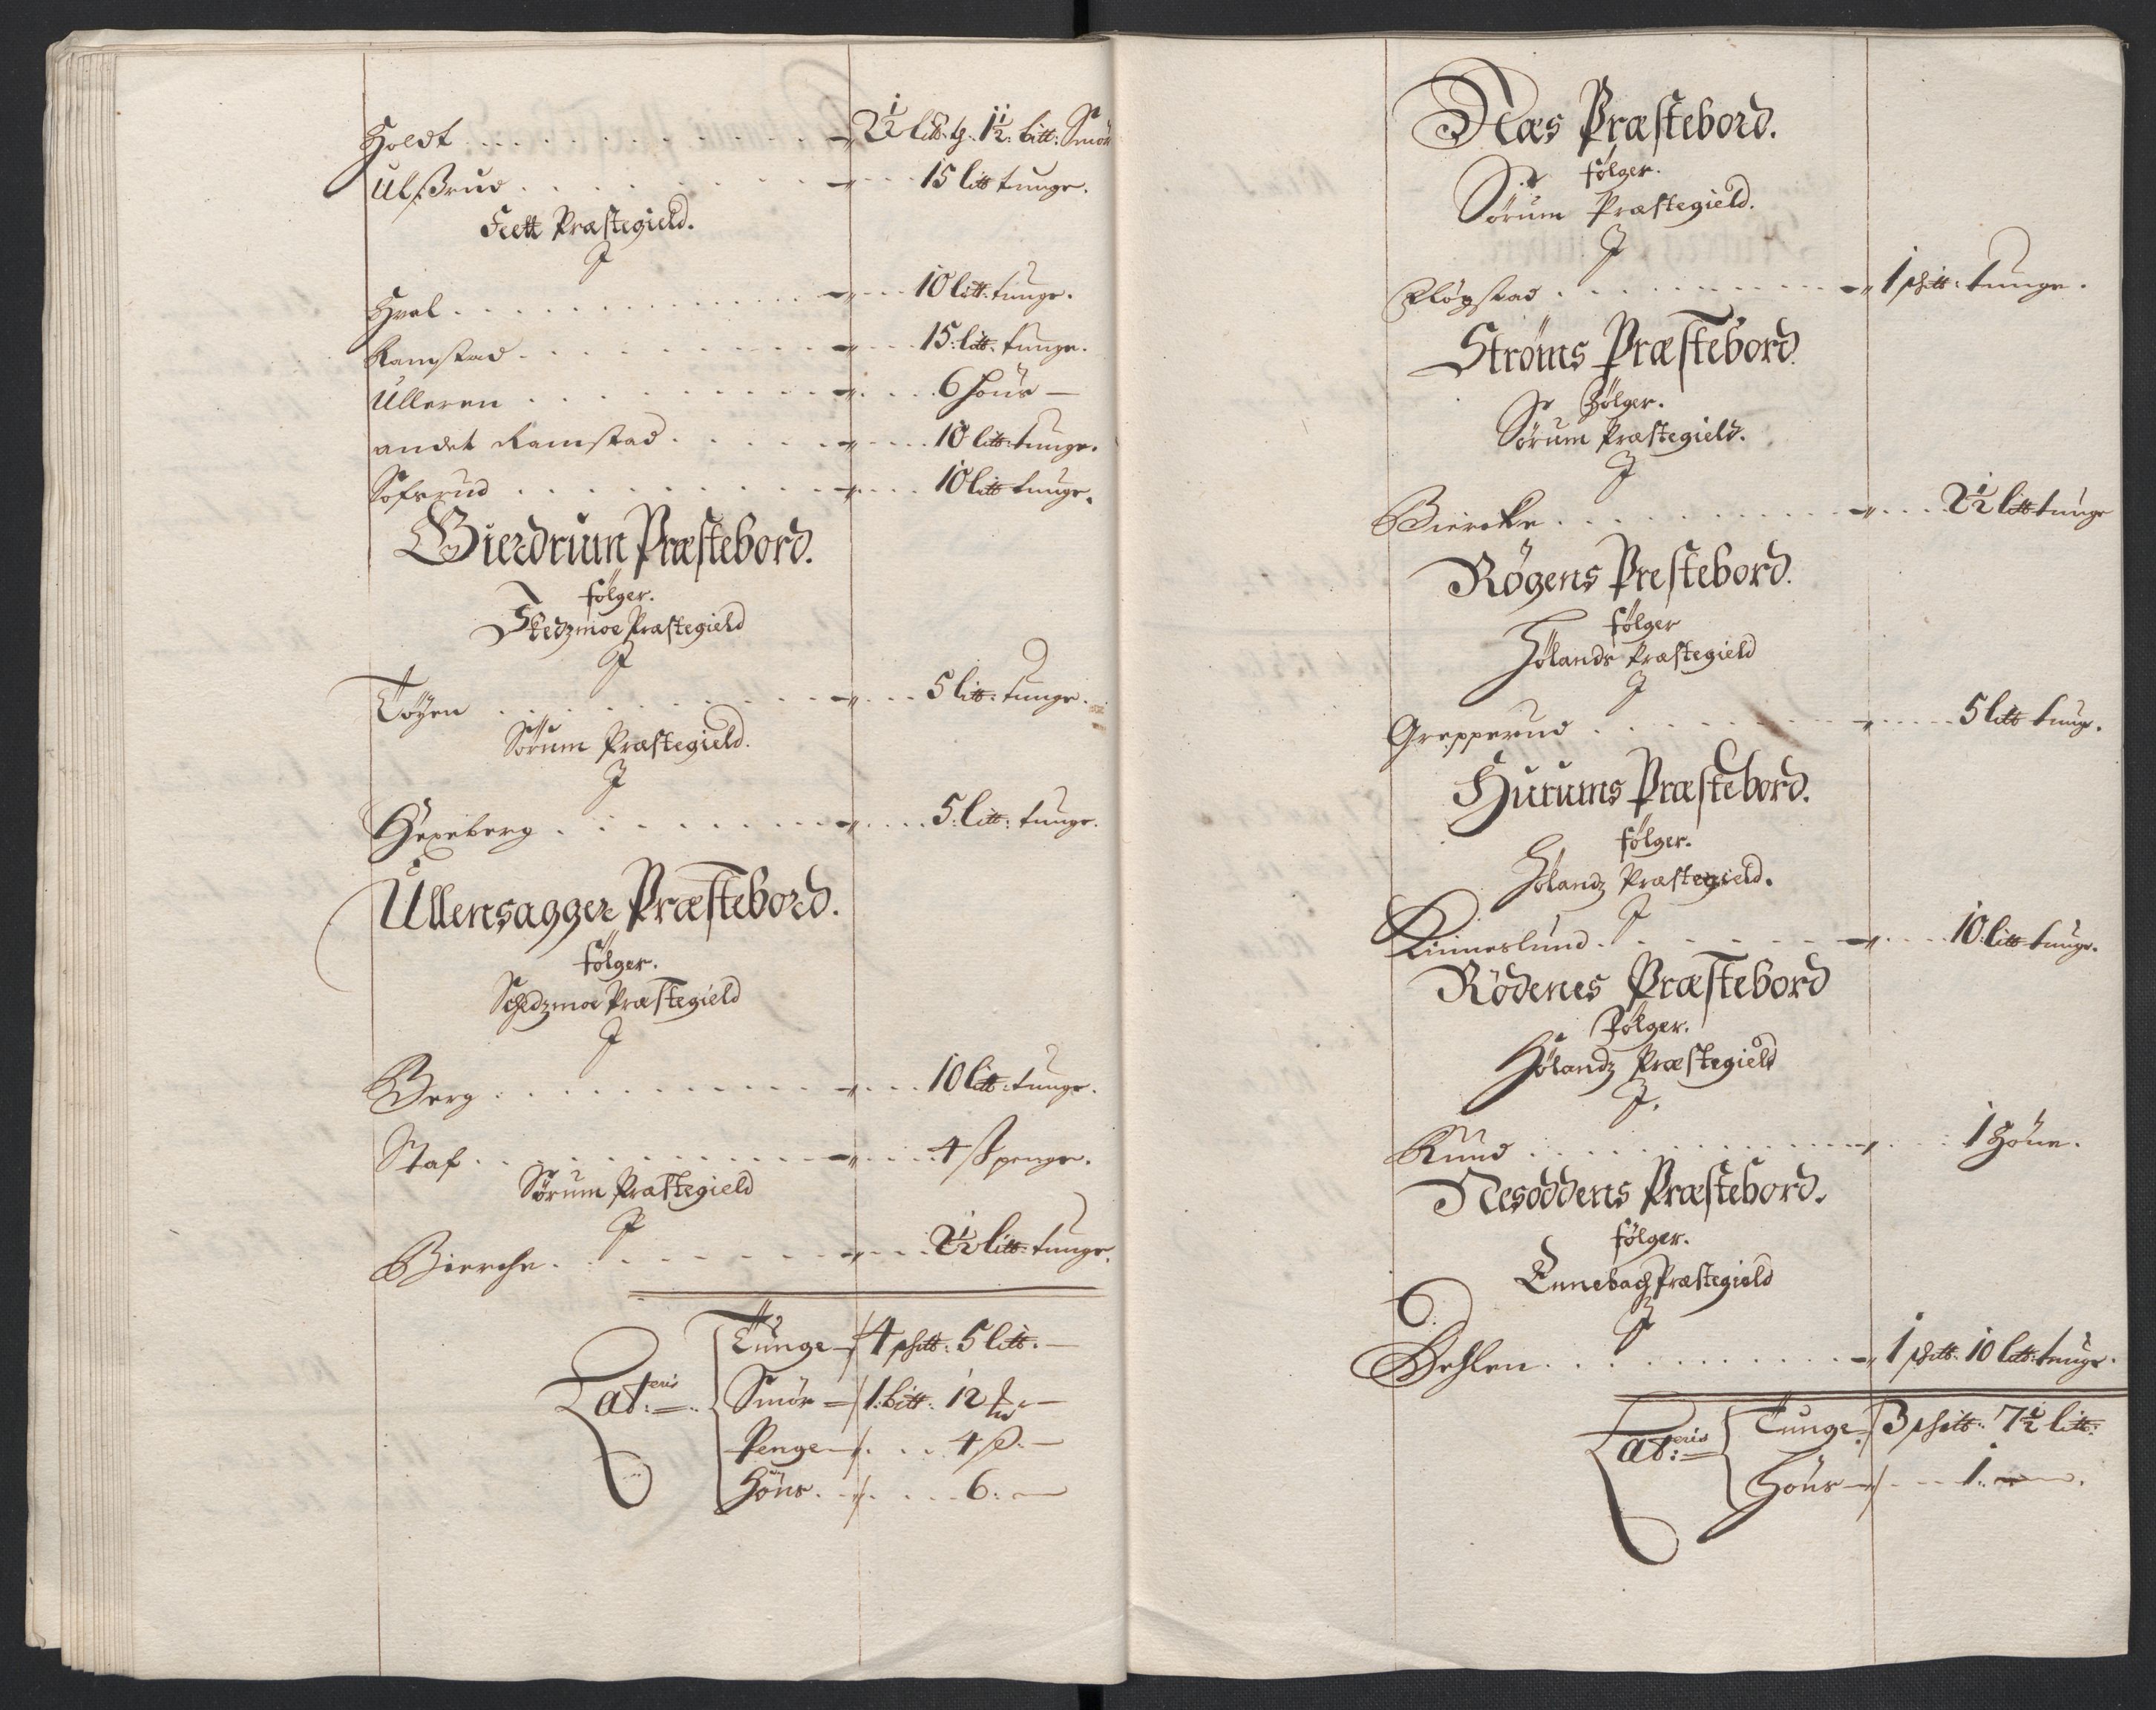 Holdt . . . . . . . . . . . . 2½ litt: tg. 1½: bitt: Smör
Ulßrud . . . . . . . . . . 15 litt tunge.
Feett Præstegield.
J
Hval . . . . . . . . . . . . 10 litt: tunge.
Ramstad . . . . . . . . . . 15: litt. tunge.
Ulleren . . . . . . . . . . 6 höns —
andet Ramstad . . . . . . 10 litt: tunge.
Sofsrud . . . . . . . . . . 10 litt tunge.
Gierdrum Præstebord.
følger.
Skedzmoe Præstegield
J
Töyen . . . . . . . . . . . 5 litt: tunge.
Sørum Præstegield.
J
Hexeberg . . . . . . . . . 5: litt: tunge.
Ullensagger Præstebord.
følger.
Schedzmoe Præstegield
J
Berg . . . . . . . . . . . . 10 litt: tunge.
Staf . . . . . . . . . . . . 4 ß penge.
Sørum Præstegield
J
Bierche . . . . . . . . . . 2½ litt: tunge.
Lat:eris Tunge 4 schtt: 5 litt. —
Smör 1: bitt: 12 —
Penge 4 ß. —
Höns. 6: —
Næs Præstebord.
følger.
Sørum Præstegield.
J
Fløgstad . . . . . . . . . . 1 schtt: tunge.
Strøms Præstebord.
følger.
Sørum Præstegield.
J
Biercke . . . . . . . . . . 2½ litt tunge
Røgens Prestebord.
følger
Hølands Præstegield
J
Grepperud . . . . . . . . 5 litt tunge.
Hurums Præstebord.
følger.
Hølandz Præstegield.
J
Kinneslund . . . . . . . . 10: litt tunge.
Rödenes Præstebord
følger.
Hølandz Præstegield
J.
Kund . . . . . . . . . . . 1 Höne.
Nesoddens Præstebord.
følger.
Ennebach Præstegield
J
Dehlen . . . . . . . . . . 1 schtt. 10 litt: tunge.
Lat:eris Tunge 3 schtt: 7½ litt:
Höns 1. —